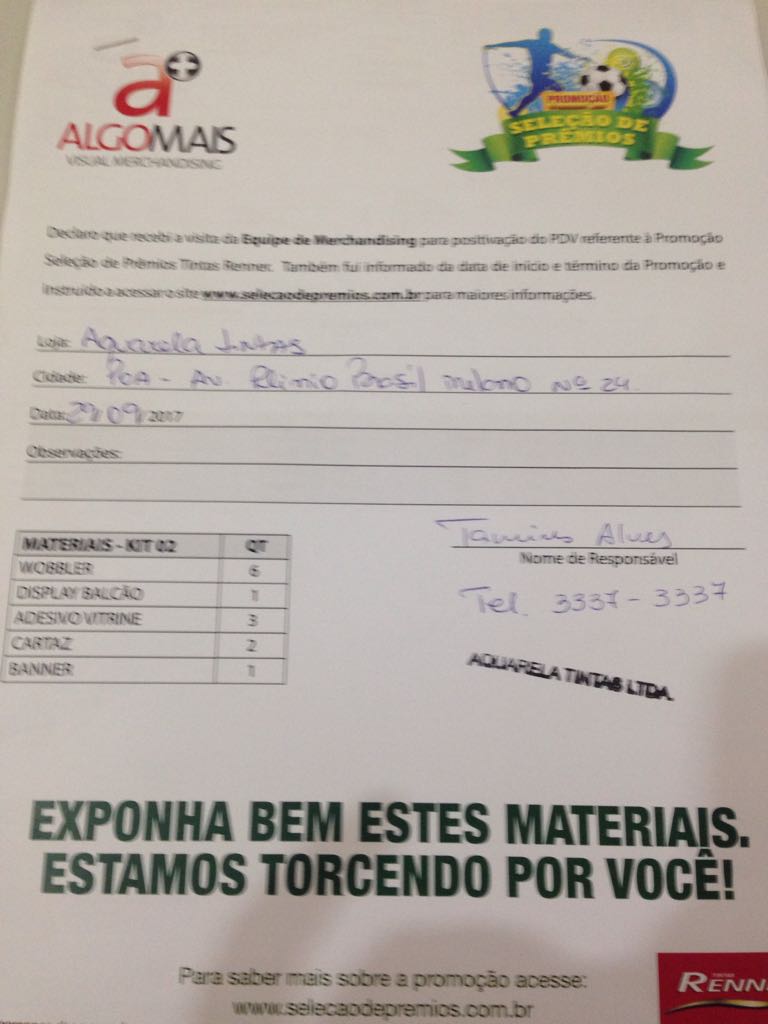 a+
ALGOMAIS
VISUAL MERCHANDISING
PROMOÇÃO
SELEÇÃO DE
PRÊMIOS
Declaro que recebi a visita da Equipe de Merchandising para positivação do PDV referente à Promoção
Seleção de Prêmios Tintas Renner. Também fui informado da data de início e término da Promoção e
instruído a acessar o site www.selecaodepremios.com.br para maiores informações.
Loja: Aquarela Tintas
Cidade: POA - Av. Plinio Brasil Milano Nº 24
Data: 29/09/2017
Observações:
MATERIAIS - KIT 02 QT
WOBBLER 6
DISPLAY BALCÃO 1
ADESIVO VITRINE 3
CARTAZ 2
BANNER 1
Tamires Alves
Nome de Responsável
Tel. 3337-3337
AQUARELA TINTAS LTDA.
EXPONHA BEM ESTES MATERIAIS.
ESTAMOS TORCENDO POR VOCÊ!
Para saber mais sobre a promoção acesse:
www.selecaodepremios.com.br
TINTAS
RENN